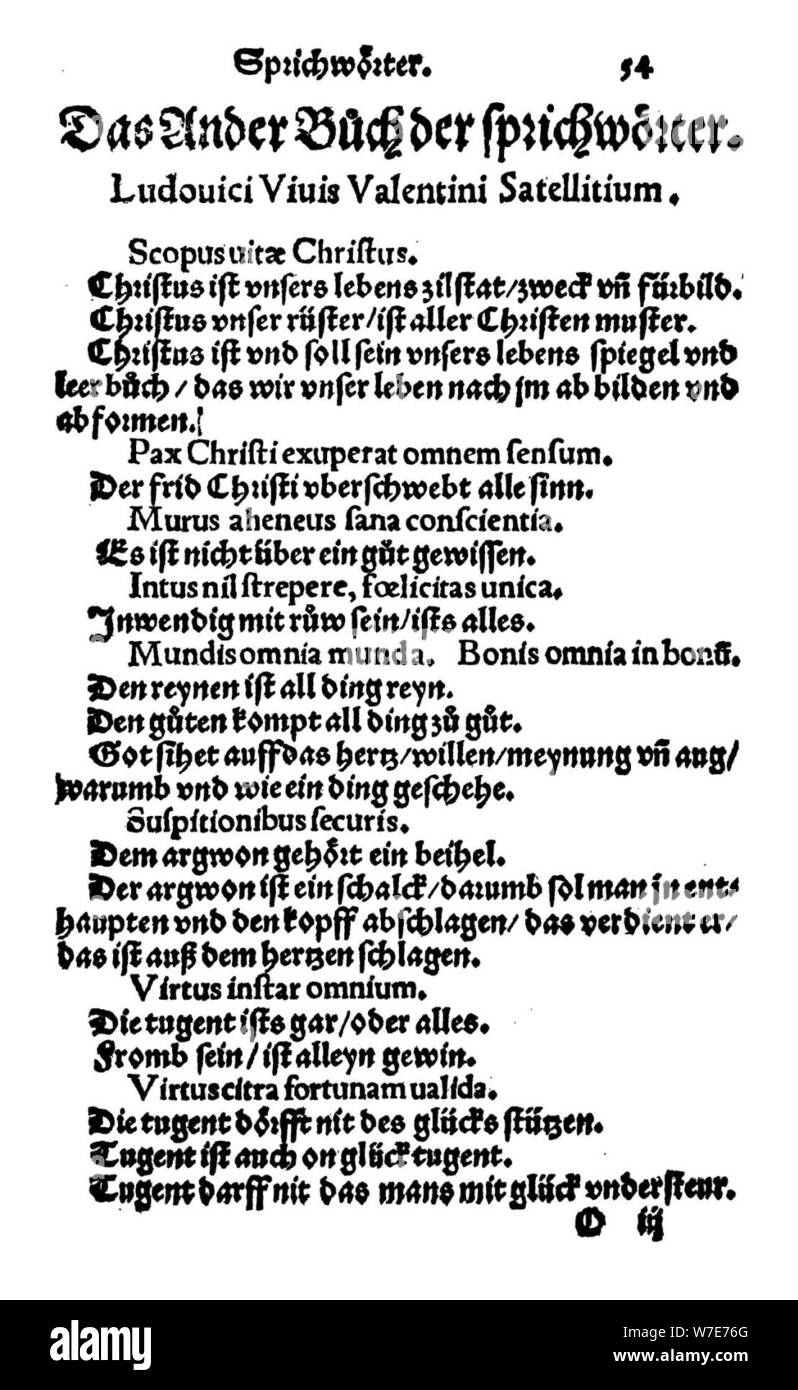 Sprichwoͤrter. 54
Das Ander Buͦch der sprichwoͤrter.
Ludouici Viuis Valentini Satellitium.
Scopus uitæ Christus.
Christus ist vnsers lebens zilstat/zweck vñ fürbild.
Christus vnser rüster/ist aller Christen muster.
Christus ist vnd soll sein vnsers lebens spiegel vnd
leer buͦch/das wir vnser leben nach jm ab bilden vnd
ab formen.
Pax Christi exuperat omnem sensum.
Der frid Christi vberschwebt alle sinn.
Murus aheneus sana conscientia.
Es ist nicht über ein guͦt gewissen.
Intus nil strepere, fœlicitas unica.
Inwendig mit ruͦw sein/ists alles.
Mundis omnia munda. Bonis omnia in bonū.
Den reynen ist all ding reyn.
Den guͦten kompt all ding zuͦ guͦt.
Got sihet auff das hertz/willen/meynung vñ aug/
warumb vnd wie ein ding geschehe.
Suspitionibus securis.
Dem argwon gehoͤrt ein beihel.
Der argwon ist ein schalck/darumb sol man jn ent⸗
haupten vnd den kopff abschlagen/das verdient er/
das ist auß dem hertzen schlagen.
Virtus instar omnium.
Die tugent ists gar/oder alles.
Fromb sein/ist alleyn gewin.
Virtus citra fortunam ualida.
Die tugent doͤrfft nit des glücks stützen.
Tugent ist auch on glück tugent.
Tugent darff nit das mans mit glück vndersteur.
O iij
alamy
Image ID: W7E76G
www.alamy.com